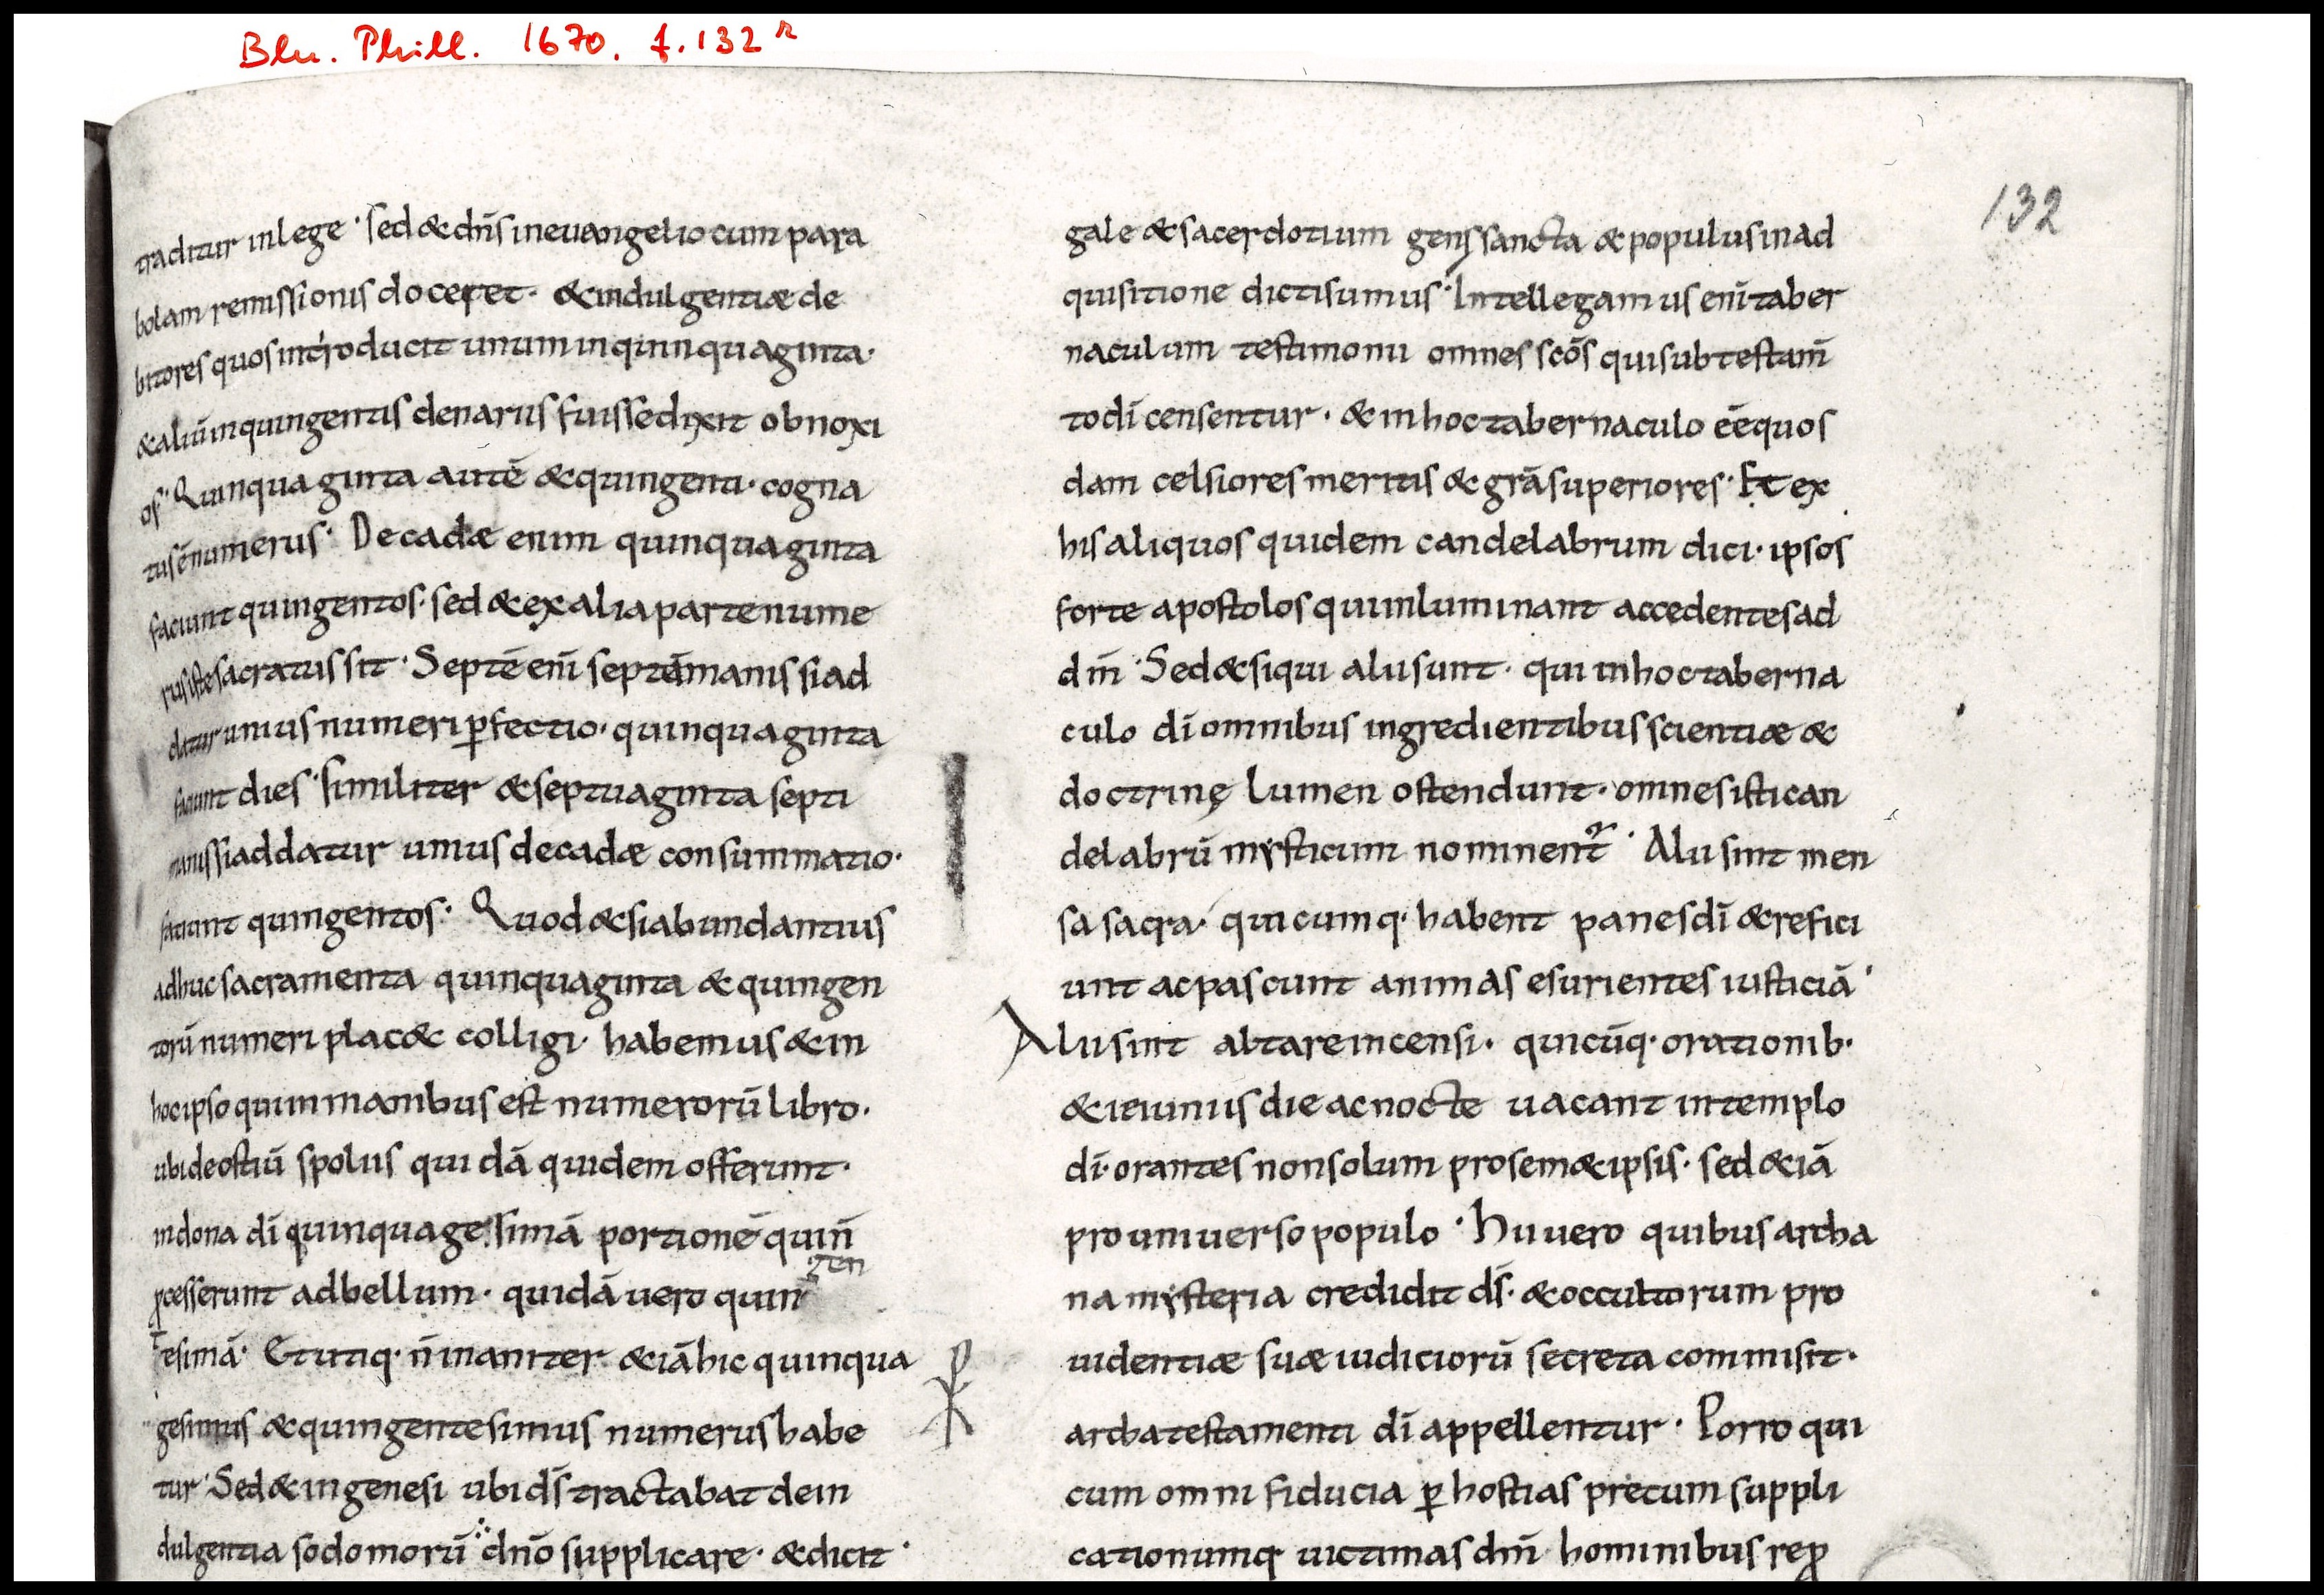 Bln. Phill. 1670. f. 132 r
132
traditur in lege · sed & dn̄s in euangelio cum para
bolam remissionis doceret · & indulgentiæ de
bitores quos introducit unum in qinnquaginta ·
& aliū in quingentis denariis fuisse dixit obnoxi
os · Quinquaginta autē & quingenti · cogna
tus ē numerus · Decadæ enim quinquaginta
faciunt quingentos · sed & ex alia parte nume
rus iste sacratus sit · Septē enī septēmanis si ad
datur unius numeri ꝑfectio · quinquaginta
faciunt dies · similiter & septuaginta septi
manis si addatur unius decadæ consummatio ·
faciunt quingentos · Quod & si abundantius
adhuc sacramenta quinquaginta & quingen
torū numeri plac& colligi · habemus & in
hoc ipso qui in manibus est numerorū libro ·
ubi de ostiū spoliis quidā quidem offerunt ·
in dona dī quinquagessimā portionē quin̄
ꝓcesserunt ad bellum · quidā uero quingen
tesimā · Et utiq · n̄ inaniter &iā hic quinqua
gesimus & quingentesimus numerus habe
tur · Sed & in genesi ubi ds̄ tractabat de in
dulgentia sodomorū dn̄o supplicare · & dicit ·
gale & sacerdotium gens sancta & populus in ad
quisitione dicti sumus · Intellegamus enī taber
naculum testimonii omnes sc̄os qui sub testam̄
to dī censentur · & in hoc tabernaculo eē quos
dam celsiores meritis & gr̄a superiores · Et ex
his aliquos quidem candelabrum dici · ipsos
forte apostolos qui inluminant accedentes ad
dm̄ · Sed & si qui alii sunt · qui in hoc taberna
culo dī omnibus ingredientibus scientiæ &
doctrinę lumen ostendunt · omnes isti can
delabrū mysticum nominent᷑ · Alii sint men
sa sacra · quicumq · habent panes dī & refici
unt ac pascunt animas esurientes iusticiā ·
Alii sint altare incensi · quicūq · orationib ·
& ieiuniis die ac nocte uacant in templo
dī · orantes non solum pro sem&ipsis · sed &iā
pro uniuerso populo · Hii uero quibus archa
na mysteria credidit ds̄ · & occultorum pro
uidentiæ suæ iudiciorū secreta commisit ·
archa testamenti dī appellentur · Porro qui
cum omni fiducia ꝑ hostias precum suppli
cationumq uictimas dm̄ hominibus reꝓ